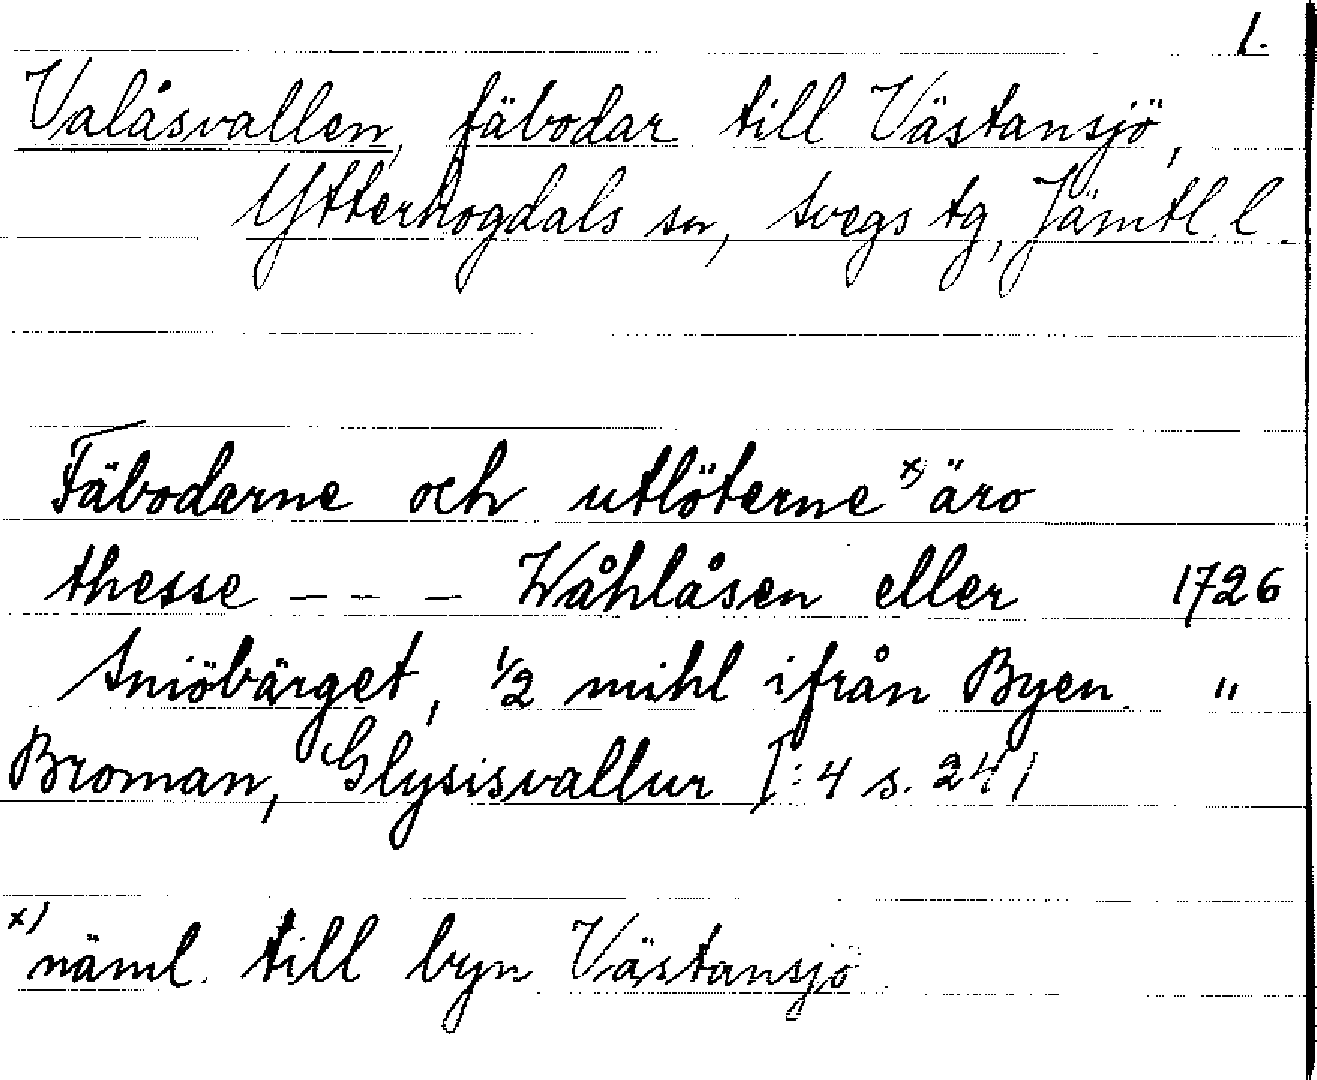 1.
Valåsvallen, fäbodar till Västansjö,
Ytterhogdals sn, Svegs tg, Jämtl. l.
Fäbodarne och utlöterne x) äro
thesse - - - Wåhlåsen eller 1726
Sniöbärget, 1/2 mihl ifrån Byen. "
Broman, Glysisvallur I:4 s. 241
x) näml. till byn Västansjö.